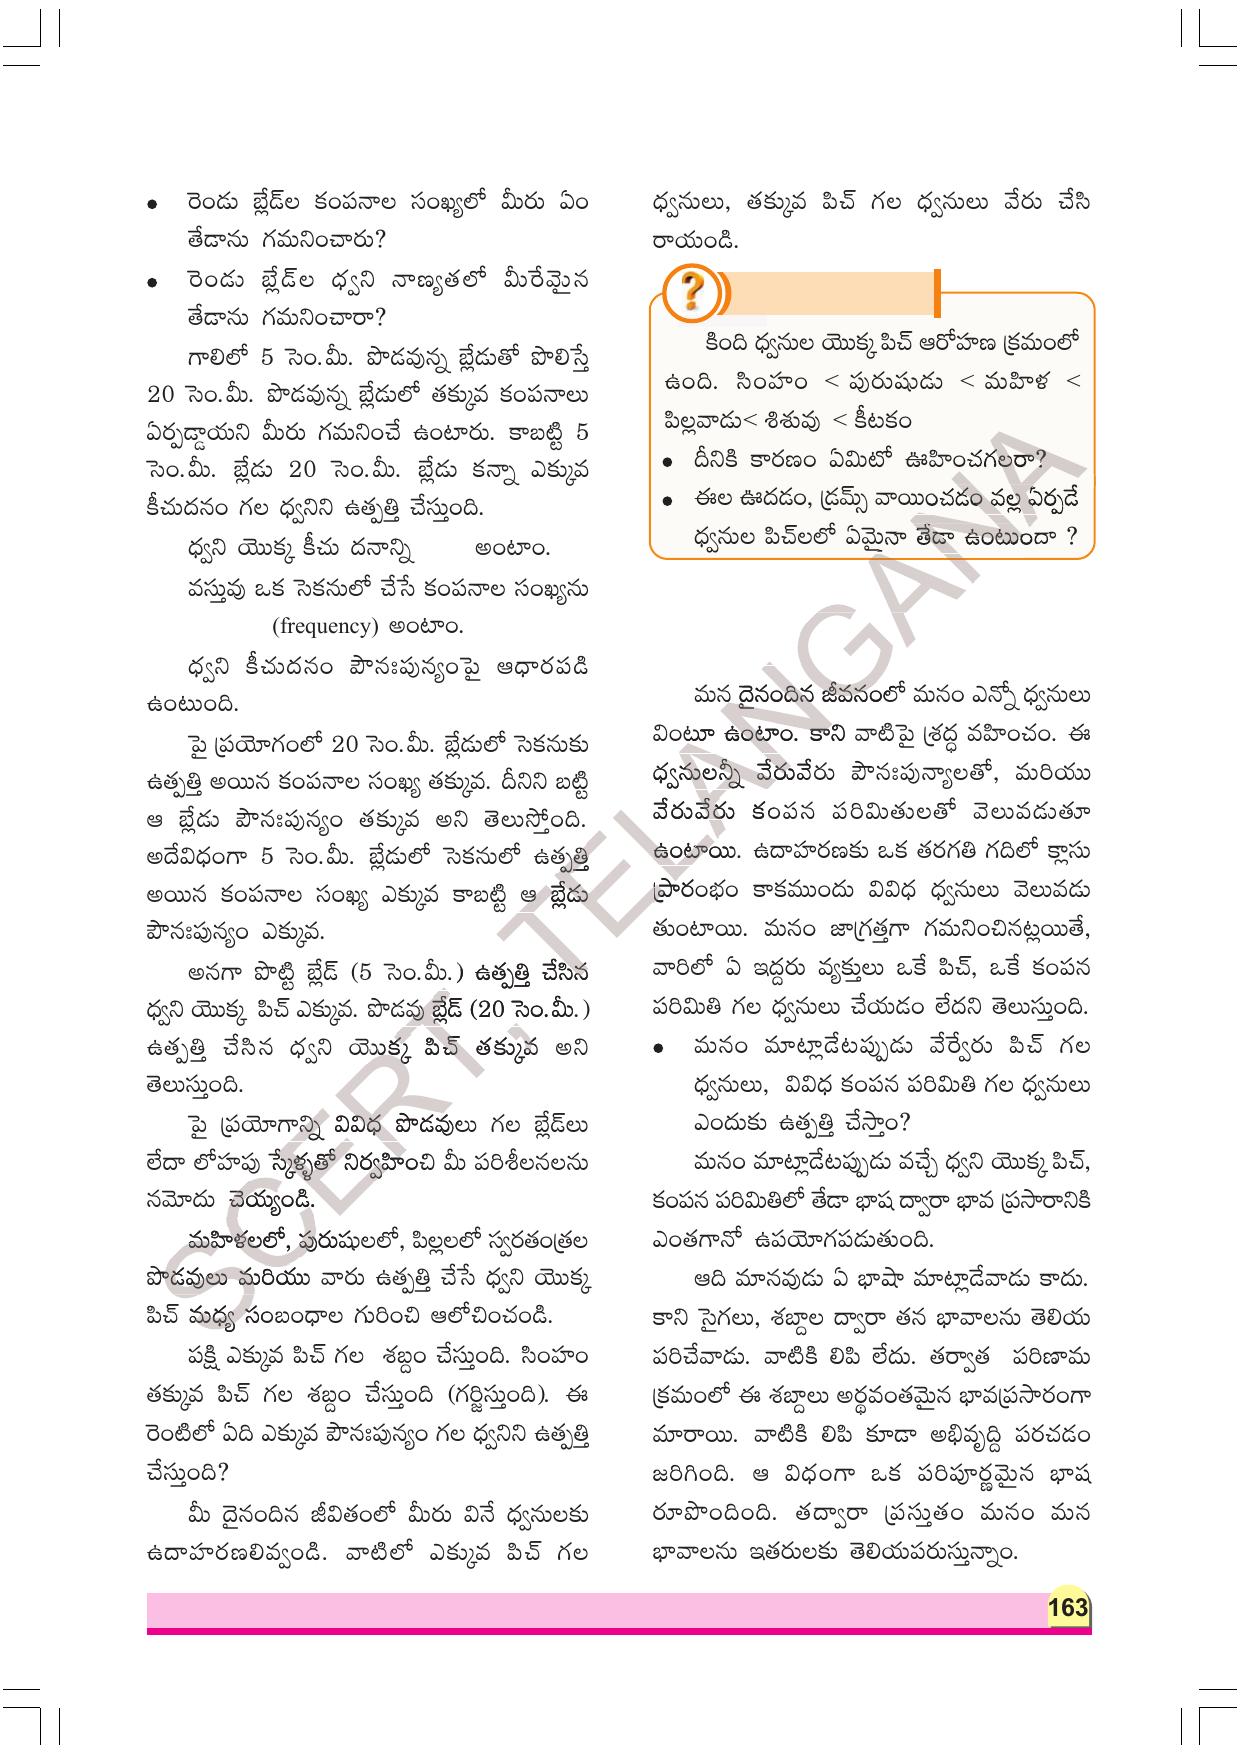 • రెండు బ్లేడ్‌ల కంపనాల సంఖ్యలో మీరు ఏం
తేడాను గమనించారు?
• రెండు బ్లేడ్‌ల ధ్వని నాణ్యతలో మీరేమైన
తేడాను గమనించారా?
గాలిలో 5 సెం.మీ. పొడవున్న బ్లేడుతో పొలిస్తే
20 సెం.మీ. పొడవున్న బ్లేడులో తక్కువ కంపనాలు
ఏర్పడ్డాయని మీరు గమనించే ఉంటారు. కాబట్టి 5
సెం.మీ. బ్లేడు 20 సెం.మీ. బ్లేడు కన్నా ఎక్కువ
కీచుదనం గల ధ్వనిని ఉత్పత్తి చేస్తుంది.
ధ్వని యొక్క కీచు దనాన్ని అంటాం.
వస్తువు ఒక సెకనులో చేసే కంపనాల సంఖ్యను
(frequency) అంటాం.
ధ్వని కీచుదనం పౌనఃపున్యంపై ఆధారపడి
ఉంటుంది.
పై ప్రయోగంలో 20 సెం.మీ. బ్లేడులో సెకనుకు
ఉత్పత్తి అయిన కంపనాల సంఖ్య తక్కువ. దీనిని బట్టి
ఆ బ్లేడు పౌనఃపున్యం తక్కువ అని తెలుస్తోంది.
అదేవిధంగా 5 సెం.మీ. బ్లేడులో సెకనులో ఉత్పత్తి
అయిన కంపనాల సంఖ్య ఎక్కువ కాబట్టి ఆ బ్లేడు
పౌనఃపున్యం ఎక్కువ.
అనగా పొట్టి బ్లేడ్ (5 సెం.మీ.) ఉత్పత్తి చేసిన
ధ్వని యొక్క పిచ్ ఎక్కువ. పొడవు బ్లేడ్ (20 సెం.మీ.)
ఉత్పత్తి చేసిన ధ్వని యొక్క పిచ్ తక్కువ అని
తెలుస్తుంది.
పై ప్రయోగాన్ని వివిధ పొడవులు గల బ్లేడ్‌లు
లేదా లోహపు స్కేళ్ళతో నిర్వహించి మీ పరిశీలనలను
నమోదు చెయ్యండి.
మహిళలలో, పురుషులలో, పిల్లలలో స్వరతంత్రల
పొడవులు మరియు వారు ఉత్పత్తి చేసే ధ్వని యొక్క
పిచ్ మధ్య సంబంధాల గురించి ఆలోచించండి.
పక్షి ఎక్కువ పిచ్ గల శబ్దం చేస్తుంది. సింహం
తక్కువ పిచ్ గల శబ్దం చేస్తుంది (గర్జిస్తుంది). ఈ
రెంటిలో ఏది ఎక్కువ పౌనఃపున్యం గల ధ్వనిని ఉత్పత్తి
చేస్తుంది?
మీ దైనందిన జీవితంలో మీరు వినే ధ్వనులకు
ఉదాహరణలివ్వండి. వాటిలో ఎక్కువ పిచ్ గల
ధ్వనులు, తక్కువ పిచ్ గల ధ్వనులు వేరు చేసి
రాయండి.
?
కింది ధ్వనుల యొక్క పిచ్ ఆరోహణ క్రమంలో
ఉంది. సింహం < పురుషుడు < మహిళ <
పిల్లవాడు< శిశువు < కీటకం
• దీనికి కారణం ఏమిటో ఊహించగలరా?
• ఈల ఊదడం, డ్రమ్స్ వాయించడం వల్ల ఏర్పడే
ధ్వనుల పిచ్‌లలో ఏమైనా తేడా ఉంటుందా ?
మన దైనందిన జీవనంలో మనం ఎన్నో ధ్వనులు
వింటూ ఉంటాం. కాని వాటిపై శ్రద్ధ వహించం. ఈ
ధ్వనులన్నీ వేరువేరు పౌనఃపున్యాలతో, మరియు
వేరువేరు కంపన పరిమితులతో వెలువడుతూ
ఉంటాయి. ఉదాహరణకు ఒక తరగతి గదిలో క్లాసు
ప్రారంభం కాకముందు వివిధ ధ్వనులు వెలువడు
తుంటాయి. మనం జాగ్రత్తగా గమనించినట్లయితే,
వారిలో ఏ ఇద్దరు వ్యక్తులు ఒకే పిచ్, ఒకే కంపన
పరిమితి గల ధ్వనులు చేయడం లేదని తెలుస్తుంది.
• మనం మాట్లాడేటప్పుడు వేర్వేరు పిచ్ గల
ధ్వనులు, వివిధ కంపన పరిమితి గల ధ్వనులు
ఎందుకు ఉత్పత్తి చేస్తాం?
మనం మాట్లాడేటప్పుడు వచ్చే ధ్వని యొక్క పిచ్,
కంపన పరిమితిలో తేడా భాష ద్వారా భావ ప్రసారానికి
ఎంతగానో ఉపయోగపడుతుంది.
ఆది మానవుడు ఏ భాషా మాట్లాడేవాడు కాదు.
కాని సైగలు, శబ్దాల ద్వారా తన భావాలను తెలియ
పరిచేవాడు. వాటికి లిపి లేదు. తర్వాత పరిణామ
క్రమంలో ఈ శబ్దాలు అర్థవంతమైన భావప్రసారంగా
మారాయి. వాటికి లిపి కూడా అభివృద్ది పరచడం
జరిగింది. ఆ విధంగా ఒక పరిపూర్ణమైన భాష
రూపొందింది. తద్వారా ప్రస్తుతం మనం మన
భావాలను ఇతరులకు తెలియపరుస్తున్నాం.
SCERT, TELANGANA
163